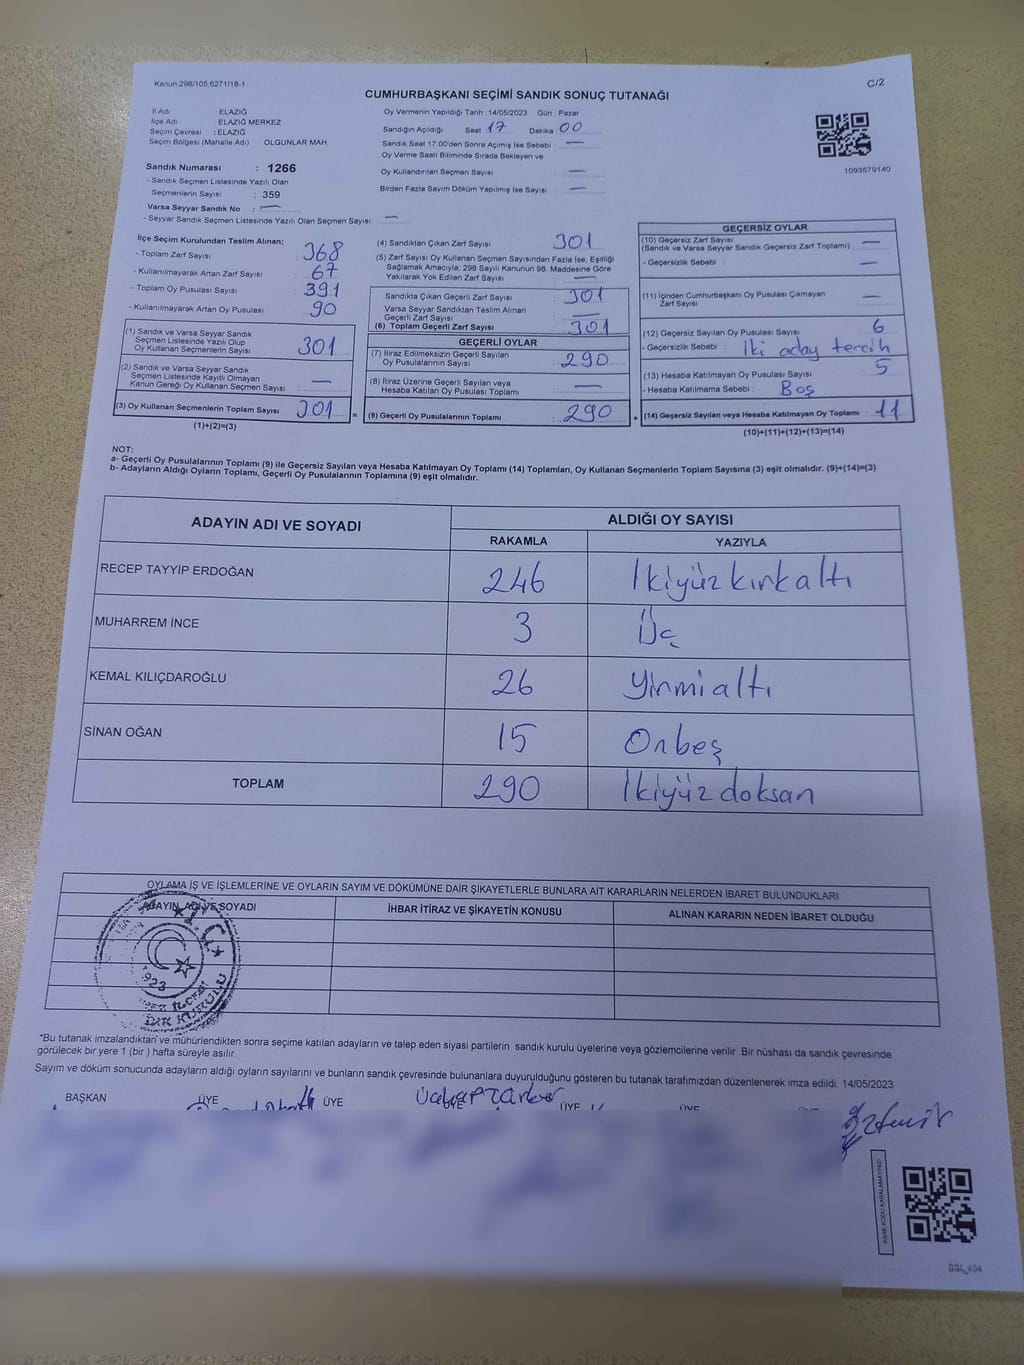 Kanun:298/105,6271/18-1
C/2
CUMHURBAŞKANI SEÇİMİ SANDIK SONUÇ TUTANAĞI
İl Adı : ELAZIĞ
İlçe Adı : ELAZIĞ MERKEZ
Seçim Çevresi : ELAZIĞ
Seçim Bölgesi (Mahalle Adı) : OLGUNLAR MAH
Sandık Numarası : 1266
- Sandık Seçmen Listesinde Yazılı Olan
Seçmenlerin Sayısı : 359
Varsa Seyyar Sandık No : —
- Seyyar Sandık Seçmen Listesinde Yazılı Olan Seçmen Sayısı: —
Oy Vermenin Yapıldığı Tarih :14/05/2023 Gün : Pazar
Sandığın Açıldığı Saat 17 Dakika 00
Sandık Saat 17.00'den Sonra Açımış İse Sebebi : —
Oy Verme Saati Bitiminde Sırada Bekleyen ve
Oy Kullandırılan Seçmen Sayısı : —
Birden Fazla Sayım Döküm Yapılmış İse Sayısı : —
1093579140
İlçe Seçim Kurulundan Teslim Alınan;
- Toplam Zarf Sayısı : 368
- Kullanılmayarak Artan Zarf Sayısı : 67
- Toplam Oy Pusulası Sayısı : 391
- Kullanılmayarak Artan Oy Pusulası : 90
(1) Sandık ve Varsa Seyyar Sandık
Seçmen Listesinde Yazılı Olup
Oy Kullanan Seçmenlerin Sayısı : 301
(2) Sandık ve Varsa Seyyar Sandık
Seçmen Listesinde Kayıtlı Olmayan
Kanun Gereği Oy Kullanan Seçmen Sayısı : —
(3) Oy Kullanan Seçmenlerin Toplam Sayısı : 301
(1)+(2)=(3)
(4) Sandıktan Çıkan Zarf Sayısı : 301
(5) Zarf Sayısı Oy Kullanan Seçmen Sayısından Fazla İse, Eşitliği
Sağlamak Amacıyla; 298 Sayılı Kanunun 98. Maddesine Göre
Yakılarak Yok Edilen Zarf Sayısı : —
Sandıkta Çıkan Geçerli Zarf Sayısı : 301
Varsa Seyyar Sandıktan Teslim Alınan
Geçerli Zarf Sayısı : —
(6) Toplam Geçerli Zarf Sayısı : 301
GEÇERLİ OYLAR
(7) İtiraz Edilmeksizin Geçerli Sayılan
Oy Pusulalarının Sayısı : 290
(8) İtiraz Üzerine Geçerli Sayılan veya
Hesaba Katılan Oy Pusulası Toplamı : —
= (9) Geçerli Oy Pusulalarının Toplamı : 290
GEÇERSİZ OYLAR
(10) Geçersiz Zarf Sayısı
(Sandık ve Varsa Seyyar Sandık Geçersiz Zarf Toplamı) : —
- Geçersizlik Sebebi : —
(11) İçinden Cumhurbaşkanı Oy Pusulası Çıkmayan
Zarf Sayısı : —
(12) Geçersiz Sayılan Oy Pusulası Sayısı : 6
- Geçersizlik Sebebi : İki aday tercih
(13) Hesaba Katılmayan Oy Pusulası Sayısı : 5
- Hesaba Katılmama Sebebi : Boş
+ (14) Geçersiz Sayılan veya Hesaba Katılmayan Oy Toplamı : 11
(10)+(11)+(12)+(13)=(14)
NOT:
a- Geçerli Oy Pusulalarının Toplamı (9) ile Geçersiz Sayılan veya Hesaba Katılmayan Oy Toplamı (14) Toplamları, Oy Kullanan Seçmenlerin Toplam Sayısına (3) eşit olmalıdır. (9)+(14)=(3)
b- Adayların Aldığı Oyların Toplamı, Geçerli Oy Pusulalarının Toplamına (9) eşit olmalıdır.
ADAYIN ADI VE SOYADI
ALDIĞI OY SAYISI
RAKAMLA YAZIYLA
RECEP TAYYİP ERDOĞAN 246 İkiyüzkırkaltı
MUHARREM İNCE 3 Üç
KEMAL KILIÇDAROĞLU 26 Yirmialtı
SİNAN OĞAN 15 Onbeş
TOPLAM 290 İkiyüzdoksan
OYLAMA İŞ VE İŞLEMLERİNE VE OYLARIN SAYIM VE DÖKÜMÜNE DAİR ŞİKAYETLERLE BUNLARA AİT KARARLARIN NELERDEN İBARET BULUNDUKLARI
ADAYIN ADI VE SOYADI İHBAR İTİRAZ VE ŞİKAYETİN KONUSU ALINAN KARARIN NEDEN İBARET OLDUĞU
T.C.
1923
*Bu tutanak imzalandıktan ve mühürlendikten sonra seçime katılan adayların ve talep eden siyasi partilerin sandık kurulu üyelerine veya gözlemcilerine verilir .Bir nüshası da sandık çevresinde
görülecek bir yere 1 (bir ) hafta süreyle asılır.
Sayım ve döküm sonucunda adayların aldığı oyların sayılarını ve bunların sandık çevresinde bulunanlara duyurulduğunu gösteren bu tutanak tarafımızdan düzenlenerek imza edildi. 14/05/2023
BAŞKAN ÜYE ÜYE ÜYE ÜYE ÜYE
KARE KODU KARALAMAYINIZ!